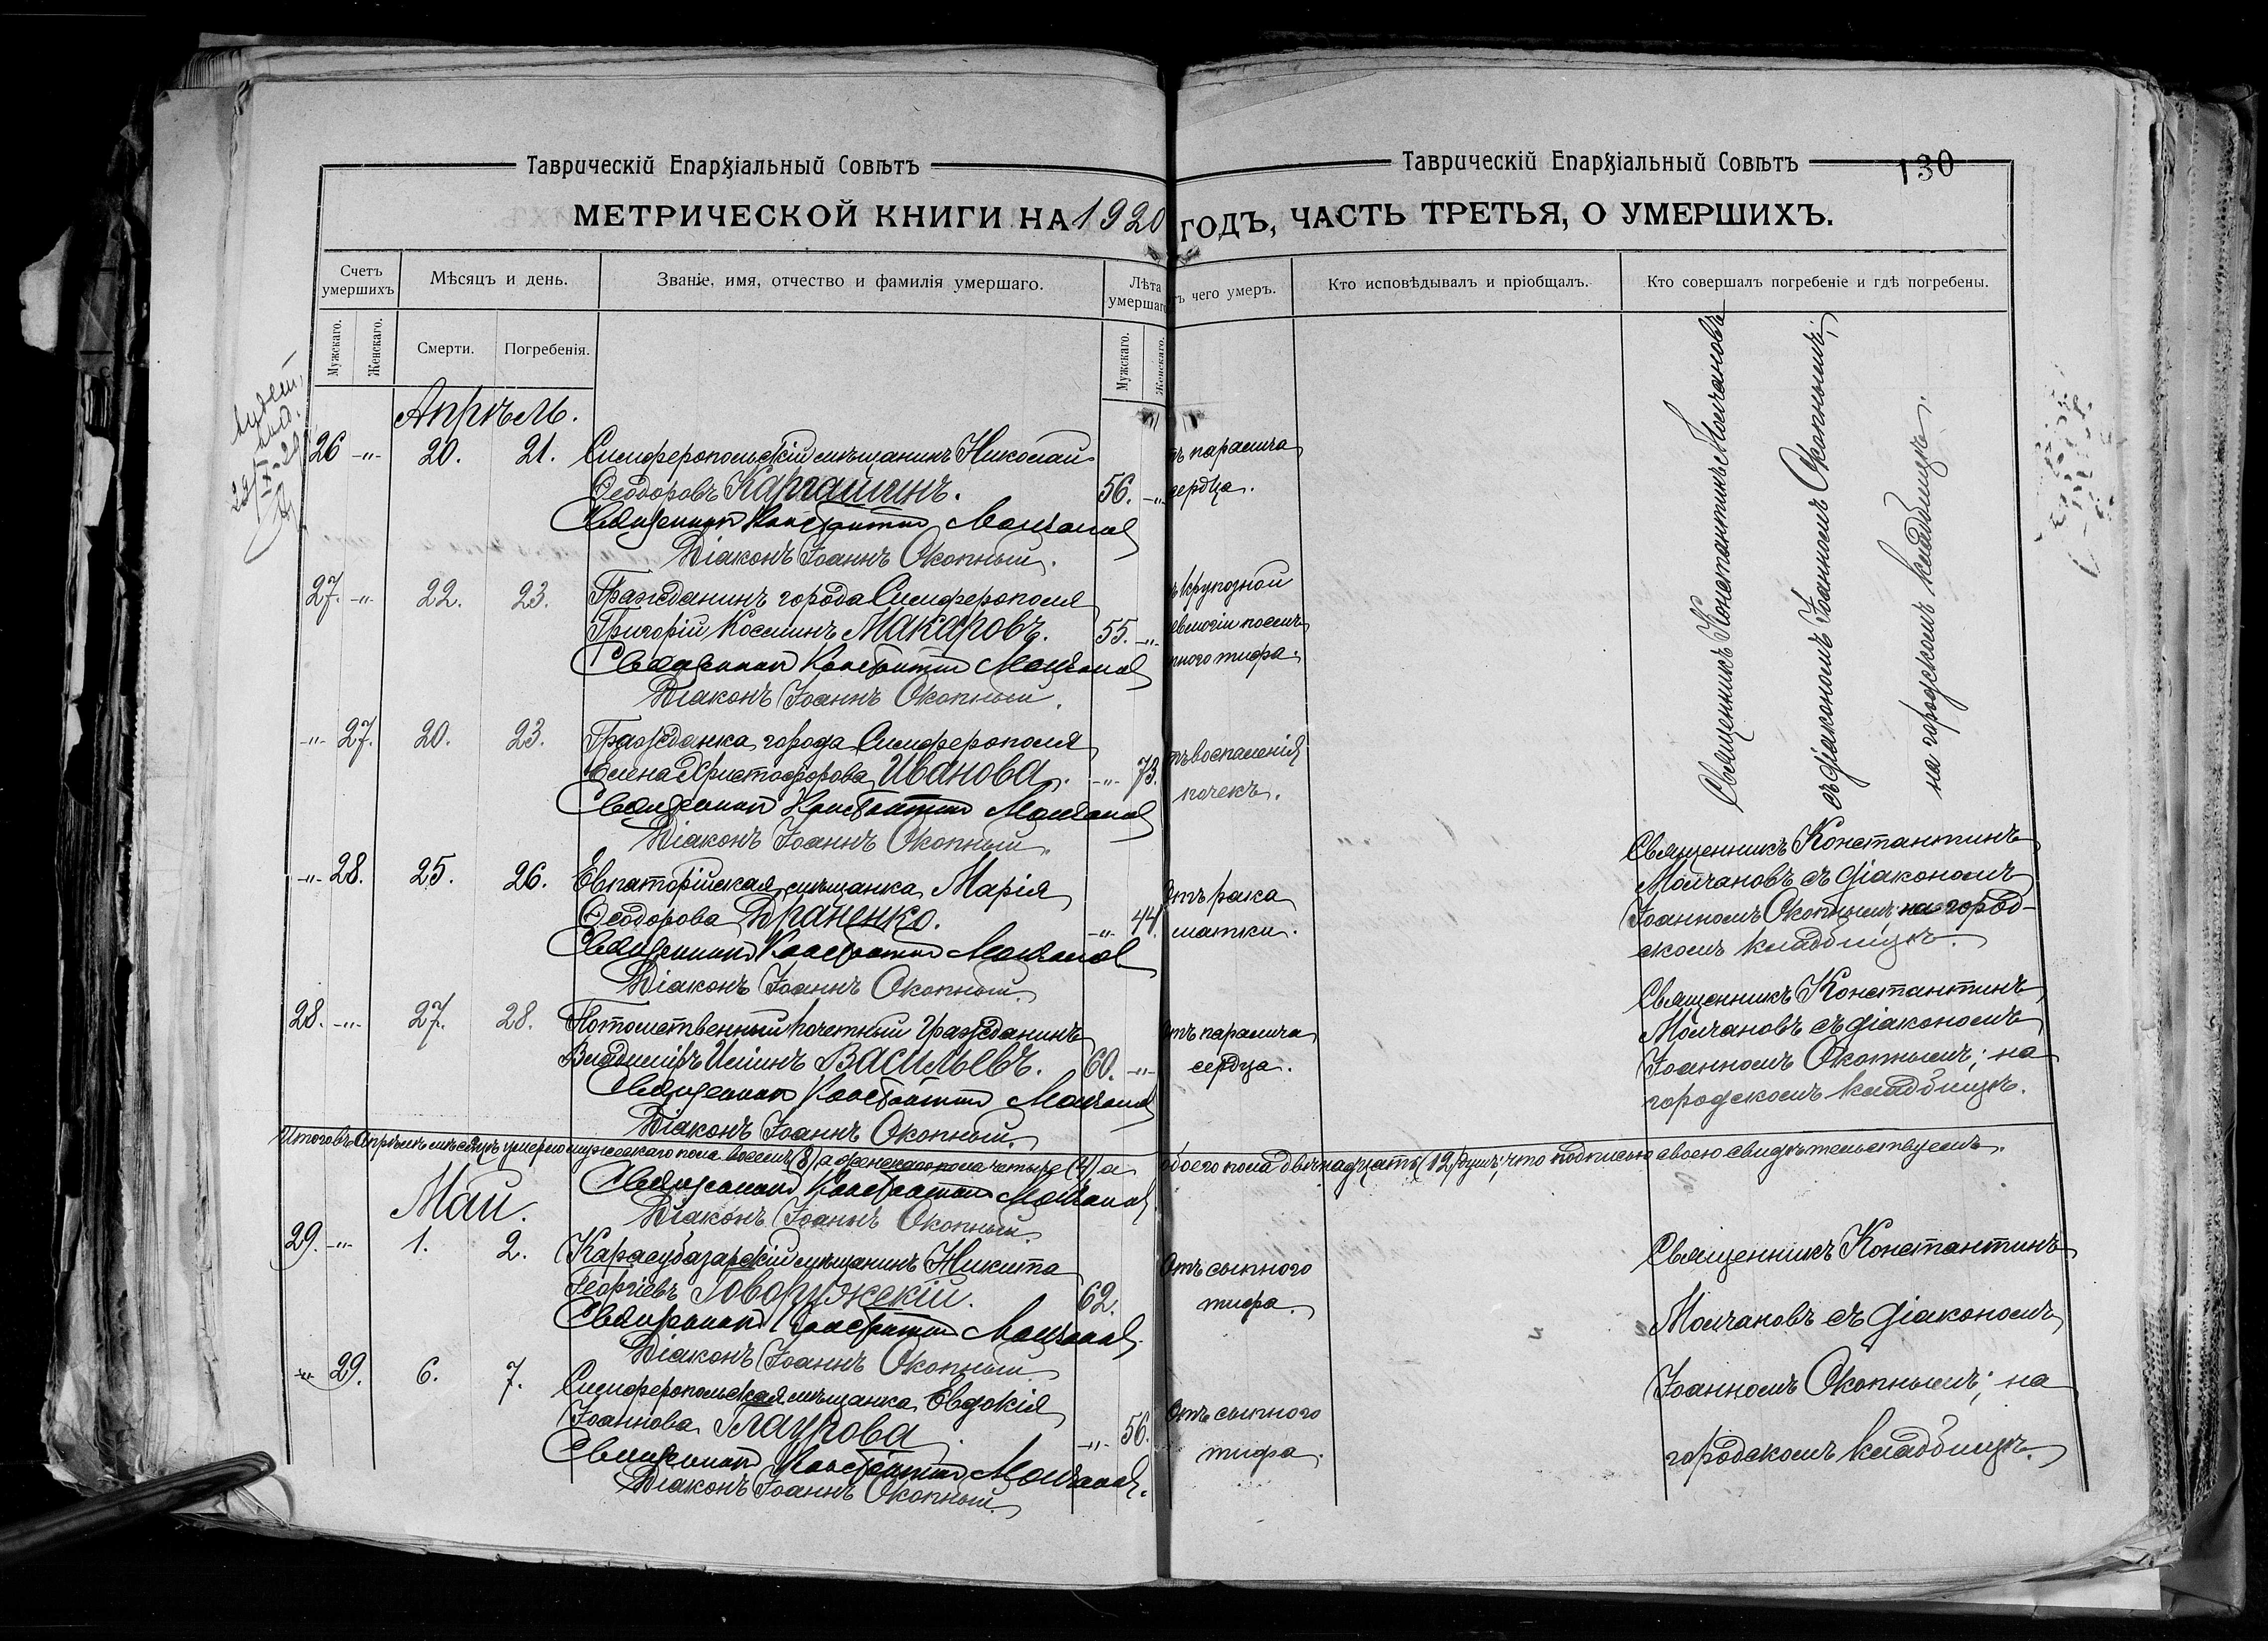 Таврическій Епархіальный Совѣтъ
МЕТРИЧЕСКОЙ КНИГИ НА 1920
Счетъ умершихъ
Мѣсяцъ и день.
Званіе, имя, отчество и фамилія умершаго.
Лѣта умершаго
Мужскаго.
Женскаго.
Смерти.
Погребенія.
Мужскаго.
Женскаго.
Апрѣль.
26 -"- 20. 21. Симферопольскій мѣщанинъ Николай
Ѳеодоровъ Каргашинъ. 56. -"-
Священник Константин Молчанов
Діаконъ Іоаннъ Окопный.
27. -"- 22. 23. Гражданинъ города Симферополя
Григорій Косминъ Макаровъ. 55. -"-
Священник Константин Молчанов
Діаконъ Іоаннъ Окопный.
-"- 27. 20. 23. Гражданка города Симферополя
Елена Христофорова Иванова. -"- 73.
Священник Константин Молчанов
Діаконъ Іоаннъ Окопный.
-"- 28. 25. 26. Евпаторійская мѣщанка Марія
Ѳеодорова Драненко. -"- 44.
Священник Константин Молчанов
Діаконъ Іоаннъ Окопный.
28. -"- 27. 28. Потомственный почетный гражданинъ
Владиміръ Ильинъ Васильевъ. 60. -"-
Священник Константин Молчанов
Діаконъ Іоаннъ Окопный.
Итого въ Апрѣлѣ мѣсяцѣ умерло мужескаго пола восемь (8) а женскаго пола четыре (4) а
Священник Константин Молчанов
Май. Діаконъ Іоаннъ Окопный.
29. -"- 1. 2. Карасубазарскій мѣщанинъ Никита
Георгіевъ Говоружскій. 62.
Священник Константин Молчанов
Діаконъ Іоаннъ Окопный.
-"- 29. 6. 7. Симферопольская мѣщанка Евдокія
Іоаннова Глаурова -"- 56.
Священник Константин Молчанов.
Діаконъ Іоаннъ Окопный.
Таврическій Епархіальный Совѣтъ
130
ГОДЪ, ЧАСТЬ ТРЕТЬЯ, О УМЕРШИХЪ.
тъ чего умеръ.
Кто исповѣдывалъ и пріобщалъ.
Кто совершалъ погребеніе и гдѣ погребены.
тъ паралича
сердца.
ъ крупозной
евмоніи послѣ
пного тифа.
тъ воспаленія
почекъ.
Священникъ Константинъ Молчановъ
съ діакономъ Іоанномъ Окопнымъ;
на городскомъ кладбищѣ.
Отъ рака
матки.
Священникъ Константинъ
Молчановъ съ діакономъ
Іоанномъ Окопнымъ на город-
скомъ кладбищѣ.
Отъ паралича
сердца.
Священникъ Константинъ
Молчановъ съ діакономъ
Іоанномъ Окопнымъ; на
городскомъ кладбищѣ.
обоего пола двѣнадцать (12) душъ; что подписью своею свидѣтельствуемъ.
Отъ сыпного
тифа.
Отъ сыпного
тифа.
Священникъ Константинъ
Молчановъ съ діакономъ
Іоанномъ Окопнымъ; на
городскомъ кладбищѣ.